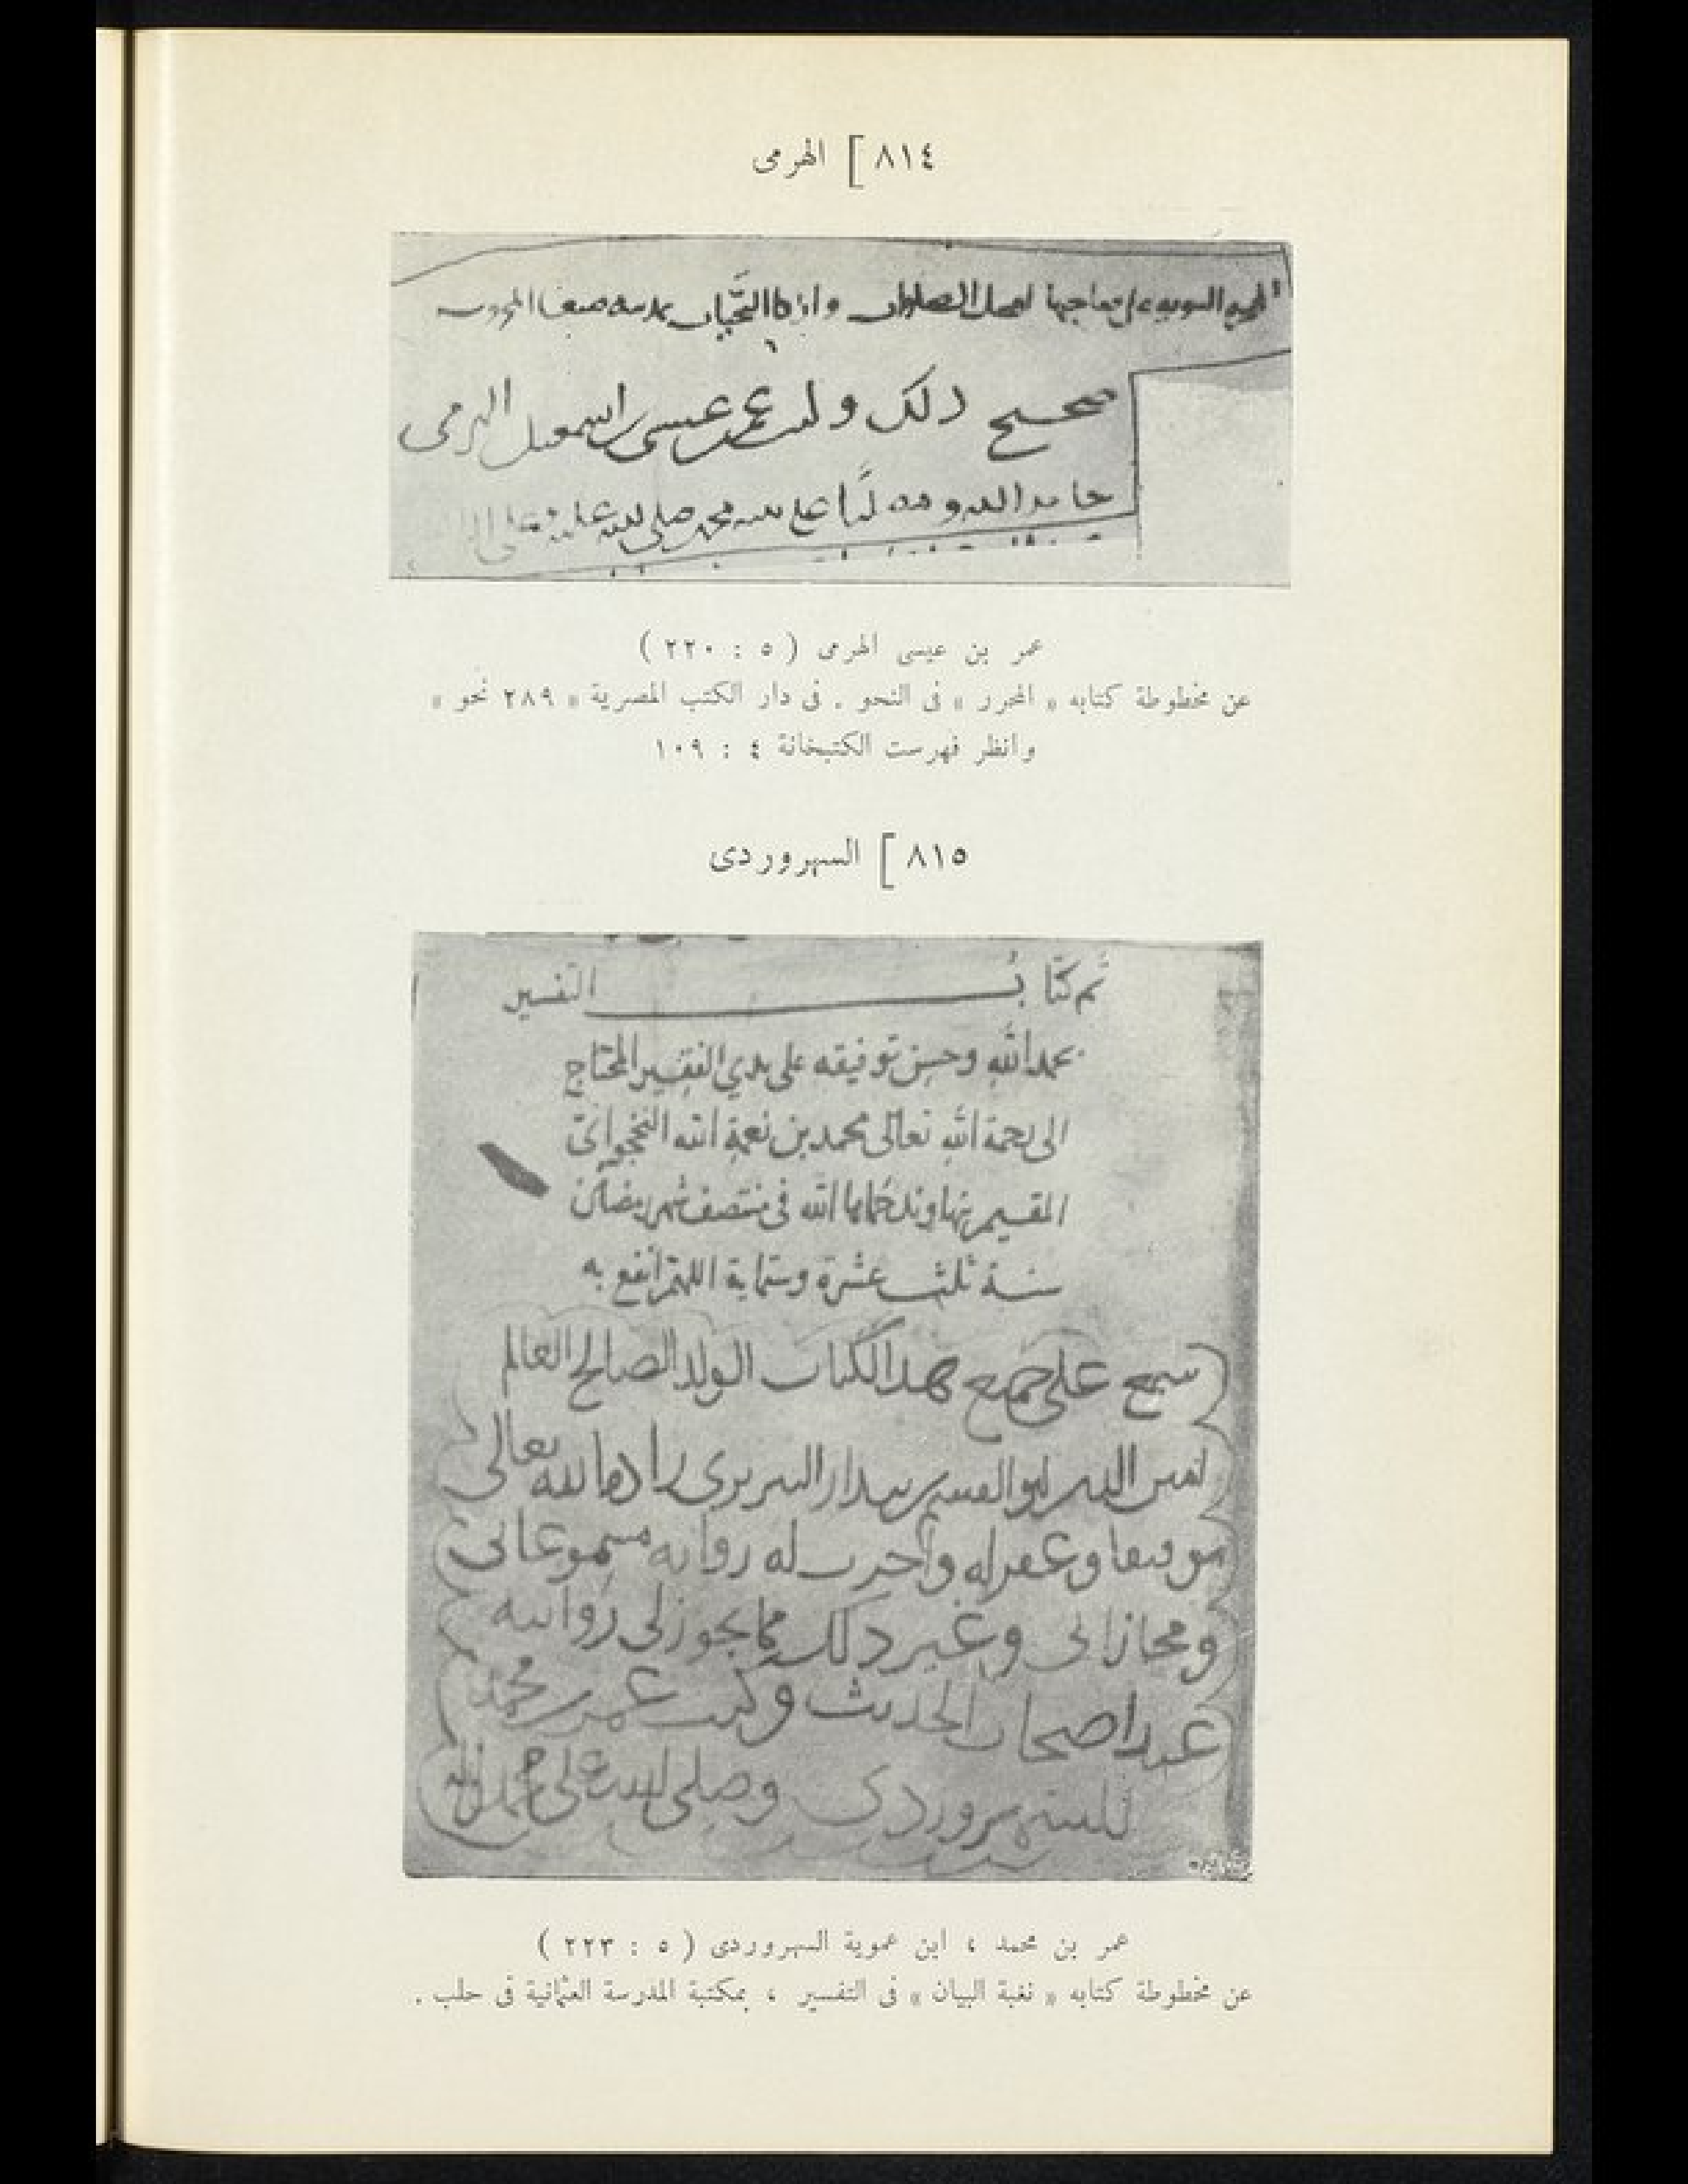 ٨١٤ ] الهرمى
صحيح ذلك وكتب عمر بن عيسى بن اسمعيل الهرمى
عمر بن عيسى الهرمى ( ٥ : ٢٢٠ )
عن مخطوطة كتابه « المحرر » فى النحو . فى دار الكتب المصرية « ٢٨٩ نحو »
وانظر فهرست الكتبخانة ٤ : ١٠٩
٨١٥ ] السهروردى
تم كتاب التفسير
بحمد الله وحسن توفيقه على يدي الفقير المحتاج
الى رحمة الله تعالى محمد بن نعمة الله النخجوانى
المقيم بنهاوند حماها الله فى منتصف شهر رمضان
سنة ثلث عشرة وستماية اللهم انفع به
سمع على جميع هذا الكتاب الولد الصالح العالم
تعالى
وغفر له واجزت له رواية مسموعاتى
ومجازاتى وغير ذلك مما يجوز لى روايته
عند اصحاب الحديث وكتب عمر بن محمد
السهروردى وصلى الله على محمد واله
عمر بن محمد ، ابن عموية السهروردى ( ٥ : ٢٢٣ )
عن مخطوطة كتابه « نغبة البيان » فى التفسير ، بمكتبة المدرسة العثمانية فى حلب .